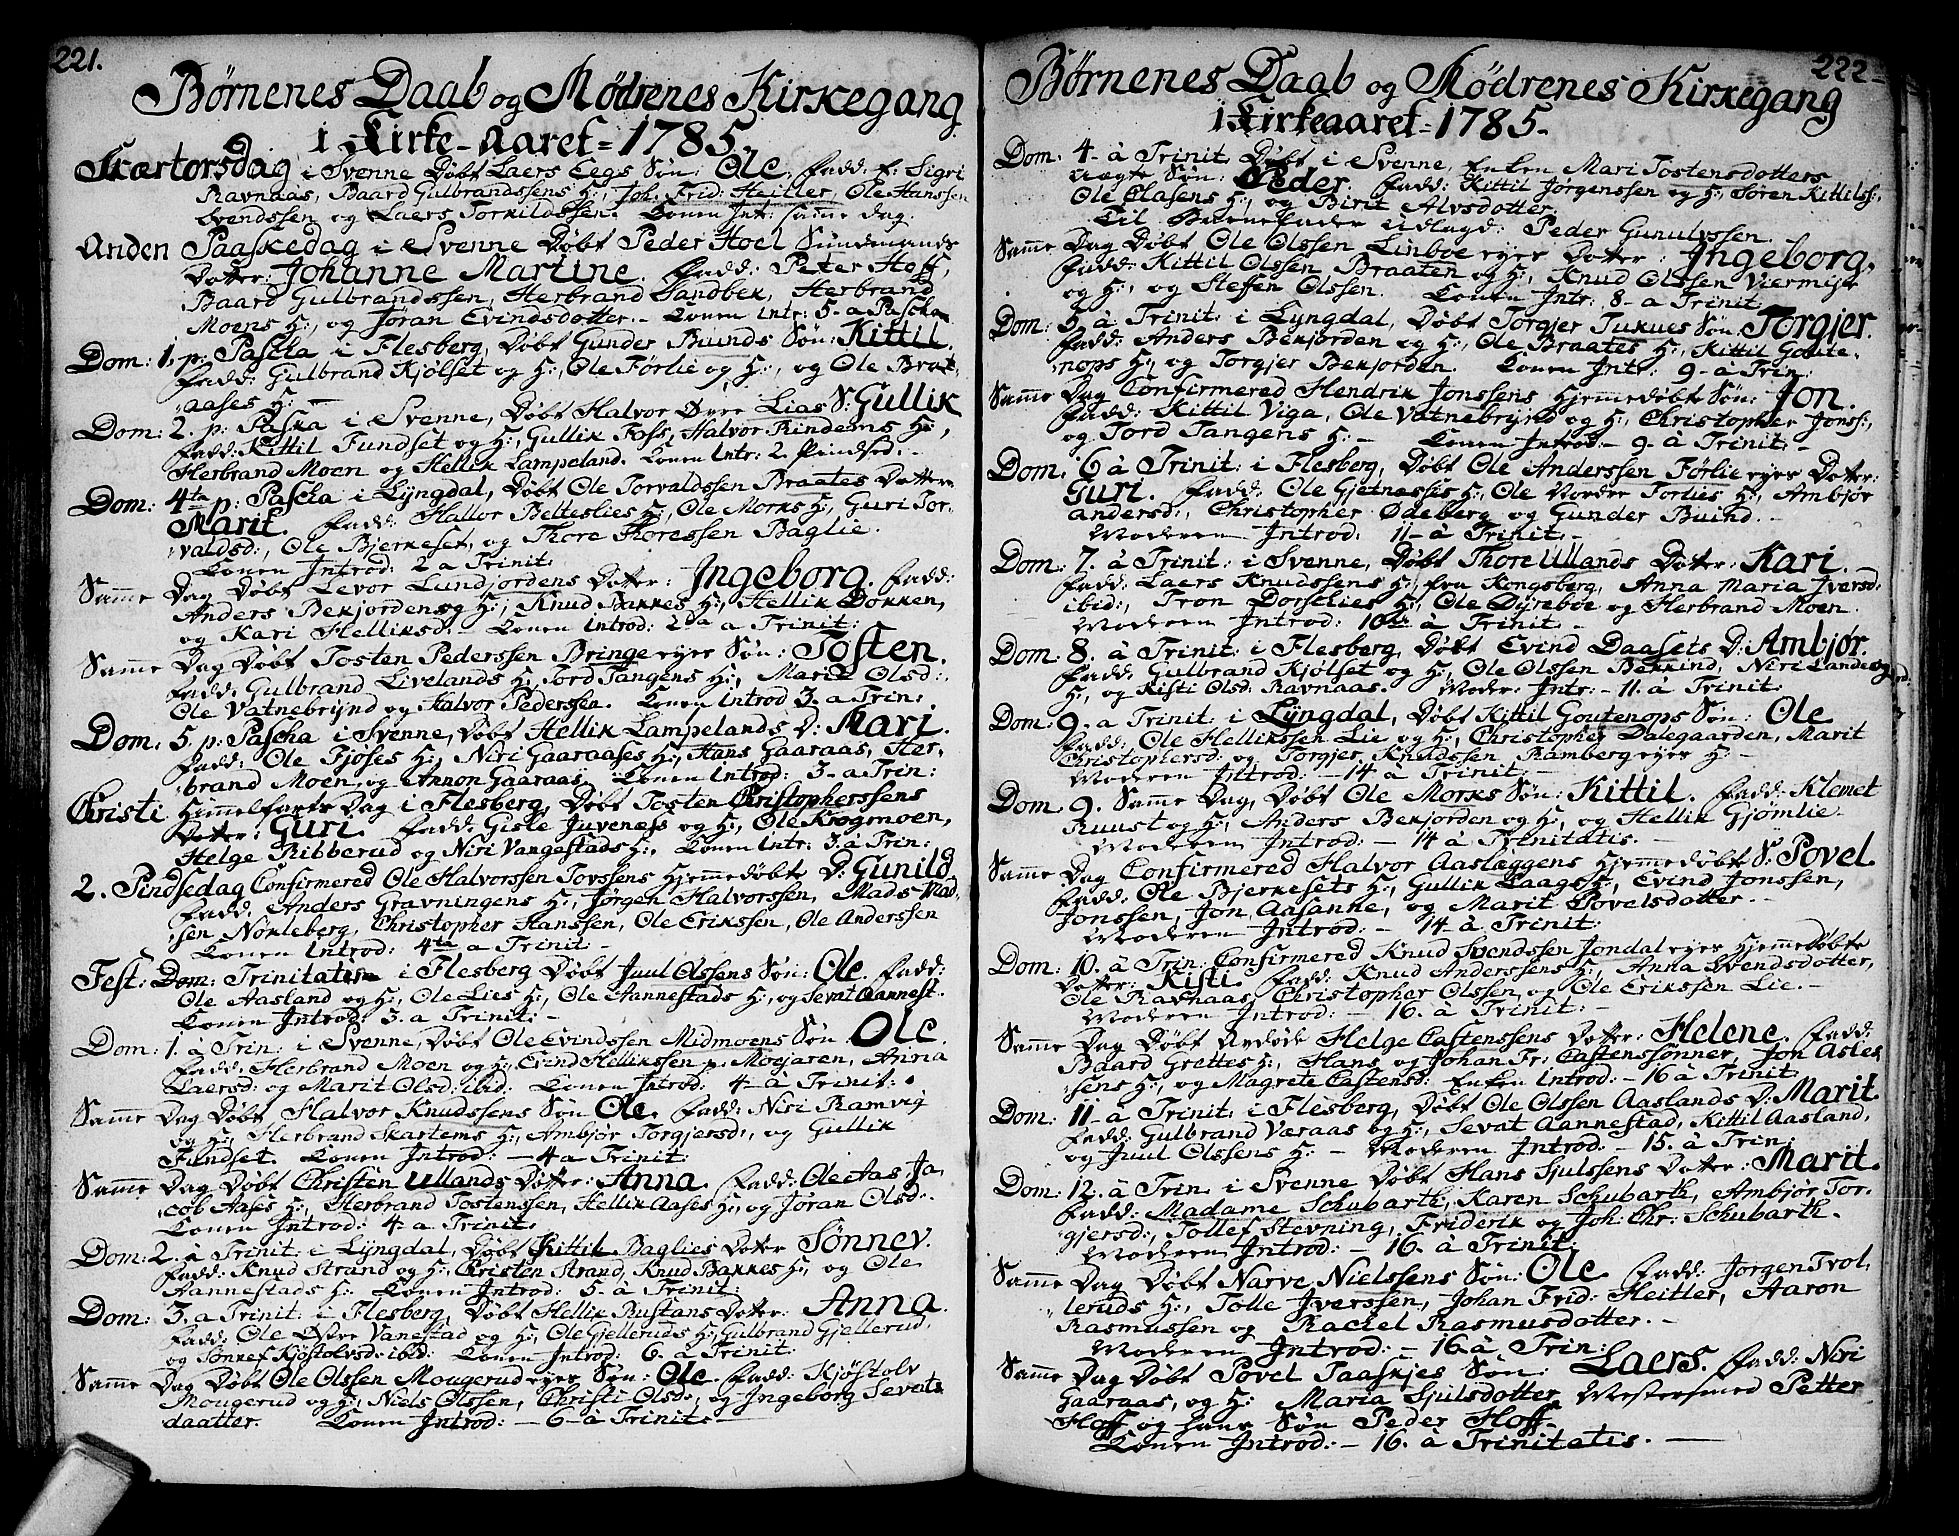 221.
Børnenes Daab og Mødrenes Kirkegang
i Kirke-Aaret = 1785.
Skærtorsdag i Svenne Døbt Laers Eegs Søn: Ole. Fadd: E: Sigri
Ravnaas, Baard Gulbrandssens H:, Joh: Frid: Heitler, Ole Hanssen
Svendssen og Laers Torkildssen. Konen Intr: samme dag.
Anden Paaskedag i Svenne Døbt Peder Hoel Sundmands
Dotter: Johanne Martine. Fadd: Peter Hoff,
Baard Gulbrandssen, Herbrand Sandbek, Herbrand
Moens H:, og Jøran Evindsdotter. - Konen Intr: 5. a Pascha
Dom: 1. p: Pascha i Flesberg, Døbt Gunder Buinds Søn: Kittil.
Fadd: Gulbrand Kjølset og H:, Ole Førlie og H:, og Ole Brat-
aases H: -
Dom: 2. p: Paska i Svenne, Døbt Halvor Øvre Lias S: Gullik
Fadd: Kittil Fundset og H:, Gullik Foss, Halvor Rindems H:,
Herbrand Moen og Hellik Lampeland. Konen Intr: 2. Pindsed. -
Dom: 4ta p: Pascha i Lyngdal, Døbt Ole Torvaldssen Braates Dotter
Marit. Fadd: Hallor Belteslies H:, Ole Morks H:, Guri Tor-
valdsd:, Ole Bjerkeset, og Thore Thoressen Baglie.
Konen Introd: 2 a Trinit:
Samme Dag Døbt Levor Lundjordens Dotter: Ingeborg. Fadd:
Anders Bekjordens og H:, Knud Bakkes H:, Hellik Dokken,
og Kari Helliksd. - Konen Introd: 2da a Trinit:
Samme Dag Døbt Tosten Pederssen Bringe ejer Søn: Tosten.
Fadd: Gulbrand Livelands H:, Tord Tangens H:, Marit Olsd:,
Ole Vatnebrynd og Halvor Pederssen. Konen Introd 3. a Trin:
Dom: 5. p: Pascha i Svenne, Døbt Hellik Lampelands D: Kari.
Fadd: Ole Fjøses H:, Niri Gaaraases H:, Hans Gaaraas, Her-
brand Moen, og Annon Gaaraas. Konen Introd: 3. a Trin:
Christi Himmelfarts Dag i Flesberg, Døbt Tosten Christopherssens
Dotter: Guri. Fadd: Gisle Juveness og H:, Ole Krogmoen,
Helge Ribberud og Niri Vangestads H:, Konen Intr: 3. a Trin:
2. Pindsedag Confirmered Ole Halvorssen Tovssens Hjemmedøbte D: Gunild
Fadd: Anders Gravningens H:, Jørgen Halvorssen, Mads Mad-
sen Nokleberg, Christopher Hanssen, Ole Erikssen, Ole Anderssen
Konen Introd: 4ta a Trinit -
Fest: Dom: Trinitatis i Flesberg Døbt Juul Olssens Søn: Ole. Fadd:
Ole Aasland og H:, Ole Lies H:, Ole Aannestads H:, og Sevat Aannest.
Konen Introd: 3. a Trinit: -
Dom: 1. à Trin: i Svenne, Døbt Ole Evindssen Midmoens Søn Ole.
Fadd: Herbrand Moen og H:, Evind Hellikssen p. Mogaren, Anna
Laersd: og Marit Olsd: ibid: Konen Introd: 4 - à Trinit:
Samme Dag Døbt Halvor Knudssens Søn Ole. Fadd: Niri Ramvig
og H:, Herbrand Skartems H:, Ambjør Torgjersd:, og Gullik
Fundset. Konen Introd: - 4 a Trinit:
Samme Dag Døbt Christen Ullands Dotter: Anna. Fadd: Ole Aas Ja-
cob Aases H:, Herbrand Tostenssen, Hellik Aases H:, og Jøran Olsd:.
Konen Introd: 4 a Trinit:
Dom: 2. a Trinit: i Lyngdal, Døbt Kittil Baglies Dotter Sønnev.
Fadd: Knud Strand og H:, Christen Strand, Knud Bakkes H:, og Ole
Aannestads H: Konen Introd: 5. à Trinit:
Dom: 3. a Trinit: i Flesberg, Døbt Hellik Rustans Dotter: Anna.
Fadd: Ole Østre Vanestad og H:, Ole Gjelleruds H:, Gulbrand Gjellerud,
og Sønnef Kjøstolvsd: ibid: Konen Introd: 6. à Trinit:
Samme Dag Døbt Ole Olssen Mougerud ejer Søn: Ole. Fadd: Kjøstolv
Mougerud og H:, Niels Olssen, Christi Olsd:, og Ingeborg Sevats
daatter. Konen Introd: - 6 - à Trinit: -
222-
Børnenes Daab og Mødrenes Kirkegang
i Kirkeaaret = 1785-
Dom: 4 - à Trinit Døbt i Svenne, Enken Mari Tostensdotters
uægte Søn: Peder. Fadd: Kittil Jørgenssen og H:, Søren Kittilss:,
Ole Olasens H:, og Birit Alvsdotter.
Til Barnefader udlagd: Peder Gunulvssen.
Samme Dag Døbt Ole Olssen Linboe ejer Dotter: Ingeborg.
Fadd: Kittil Olssen, Braaten og H:, Knud Olssen Viermyr
og H:, og Steffen Olssen. Konen Intr: 8 - a Trinit:
Dom: 5. à Trinit: i Lyngdal, Døbt Torgjer Tukues Søn: Torgjer.
Fadd: Anders Bekjorden og H:, Ole Braates H:, Kittil Goute-
nops H:, og Torgjer Bekjorden. Konen Intr: 9 - a Trin:
Samme Dag Confirmered Hendrik Jonssens Hjemmedøbte Søn: Jon.
Fadd: Kittil Viga, Ole Vatnebrynd og H:, Christopher Jonss:,
og Tord Tangens H: - Konen Introd: - 9 - à Trinit: -
Dom: 6 à Trinit: i Flesberg, Døbt Ole Anderssen Førlie ejer Dotter:
Guri. Fadd: Ole Gjetnæsses H:, Ole Nordre Førlies H:, Ambjør
Andersd:, Christopher Ødeberg og Gunder Buind. -
Moderen Introd: 11 - à Trinit: -
Dom: 7. à Trinit: i Svenne, Døbt Thore Ullands Dotter: Kari.
Fadd: Laers Knudssens H:, fra Kongsberg, Anna Maria Iversd:
ibid:, Tron Dorselies H:, Ole Dyreboe og Herbrand Moen.
Moderen Introd: 10de à Trinit: -
Dom: 8. à Trinit: i Flesberg, Døbt Evind Daasets D: Ambjør.
Fadd: Gulbrand Kjølset og H:, Ole Olssen Bekkind, Niri Lande og
H:, og Kisti Olsd: Ravnaas. Moder: Intr: - 11. à Trinit:
Dom: 9. a Trinit: i Lyngdal, Døbt Kittil Goutenops Søn: Ole
Fadd: Ole Hellikssen Lie og H:, Christopher Dalegaarden, Marit
Christophersd: og Torgjer Knudssen Ramberg ejer H: -
Moderen Introd: - 14 - à Trinit: -
Dom 9. Samme Dag, Døbt Ole Morks Søn: Kittil. Fadd: Klemet
Ruust og H:, Anders Bekjorden og H:, og Hellik Gjømlie.
Moderen Introd: - 14 à Trinitatis. -
Samme Dag Confirmered Halvor Aaslæggens Hjemmedøbt S: Povel.
Fadd: Ole Bjerkesets H:, Gullik Laags H:, Evind Jonssen,
Jonssen, Jon Aasanne, og Marit Povelsdotter. -
Moderen Introd: - 14 - à Trinit:
Dom: 10. à Trin: Confirmered Knud Svendssen Jondal ejer Hjemmedøbte
Dotter: Kisti. Fadd: Knud Anderssens H:, Anna Svendsdotter,
Ole Ravnaas, Christopher Olssen, og Ole Erikssen Lie. -
Moderen Introd: - 16. à Trinit: -
Samme Dag Døbt afdøde Helge Castenssens Dotter: Helene. Fadd:
Baard Grettes H:, Hans og Johan Fr: Castenssønner, Jon Asles-
sens H:, og Magrete Castensd: Enken Introd: - 16 à Trinit:
Dom: 11 - a Trinit: i Flesberg, Døbt Ole Olssen Aaslands D: Marit
Fadd: Gulbrand Væraas og H:, Sevat Aannestad, Kittil Aasland,
og Juul Olssens H: - Moderen Introd: - 15. à Trin:
Dom: 12. à Trin. i Svenne Døbt Hans Sjulssens Dotter: Marit.
Fadd: Madame Schubarth, Karen Schubarth, Ambjør Tor-
gjersd:, Tollef Stevning, Friderik og Joh: Chr: Schubarth.
Moderen Introd: - 16. à Trinit:
Samme Dag Døbt Narve Nielssens Søn: Ole. Fadd: Jørgen Trol-
leruds H:, Tolle Iverssen, Johan Frid: Heitler, Aaron
Rasmussen og Rachel Rasmusdotter. -
Moderen Introd: - 16. à Trin:
Samme Dag Døbt Povel Taaskjes Søn: Laers. Fadd: Niri
Gaaraas, og H: Maria Sjulsdotter, Mestersmed Petter
Hoff og hans Søn Peder Hoff -
Konen Introd: - 16. à Trinitatis. -